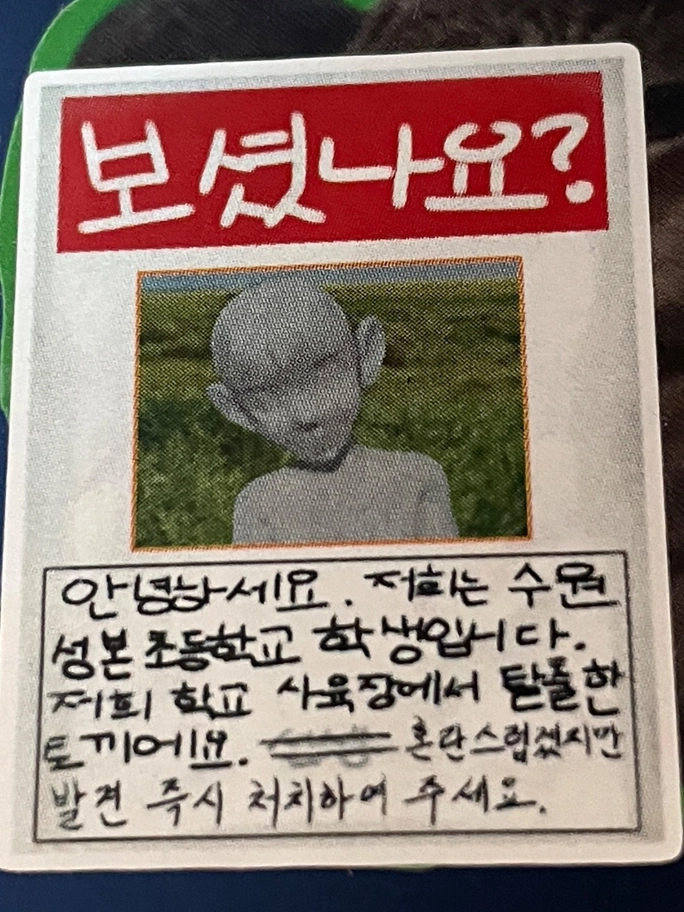 보셨나요?
안녕하세요. 저희는 수원
성본 초등학교 학생입니다.
저희 학교 사육장에서 탈출한
토끼에요. 혼란스럽겠지만
발견 즉시 처치하여 주세요.